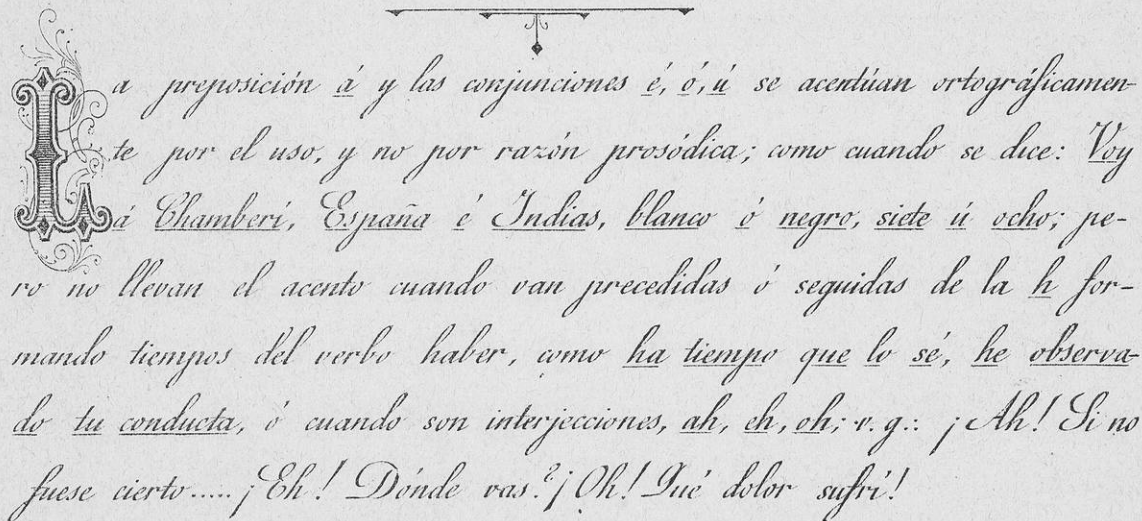 La preposición á y las conjunciones é, ó, ú se acentúan ortográficamen-
te por el uso, y no por razón prosódica; como cuando se dice: Voy
á Chamberí, España é Indias, blanco ó negro, siete ú ocho; pe-
ro no llevan el acento cuando van precedidas ó seguidas de la h for-
mando tiempos del verbo haber, como ha tiempo que lo sé, he observa-
do tu conducta, ó cuando son interjecciones, ah, eh, oh; v. g.: ¡Ah! Si no
fuese cierto..... ¡Eh! Dónde vas? ¡Oh! Qué dolor sufrí!